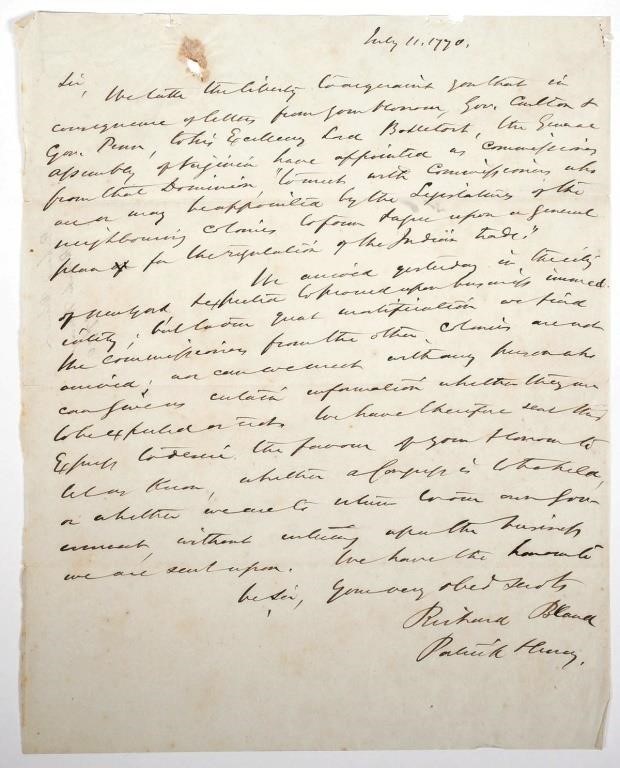 July 11. 1770.
Sir, We take the liberty to acquaint you that in
consequence of letters from your Honour, Gov. Carlton &
Gov. Penn, to his Excellency Lord Bottetort, the General
Assembly of Virginia have appointed us commissioners
from that Dominion, "to meet with Commissioners who
are or may be appointed by the Legislatures of the
neighbouring Colonies to form & agree upon a general
plan for the regulation of the Indian trade."
We arrived yesterday in the city
of New York & expected to proceed upon business immed-
iately; but to our great mortification we find
the commissioners from the other Colonies are not
arrived; nor can we meet with any person who
can give us certain information whether they are
to be expected or not. We have therefore sent this
Express to desire the favour of your Honour to
let us know, whether a Congress is to be held,
or whether we are to return to our own Gov-
ernment, without entering upon the business
we are sent upon. We have the honour to
be Sir, your very obed servts
Richard Bland
Patrick Henry.